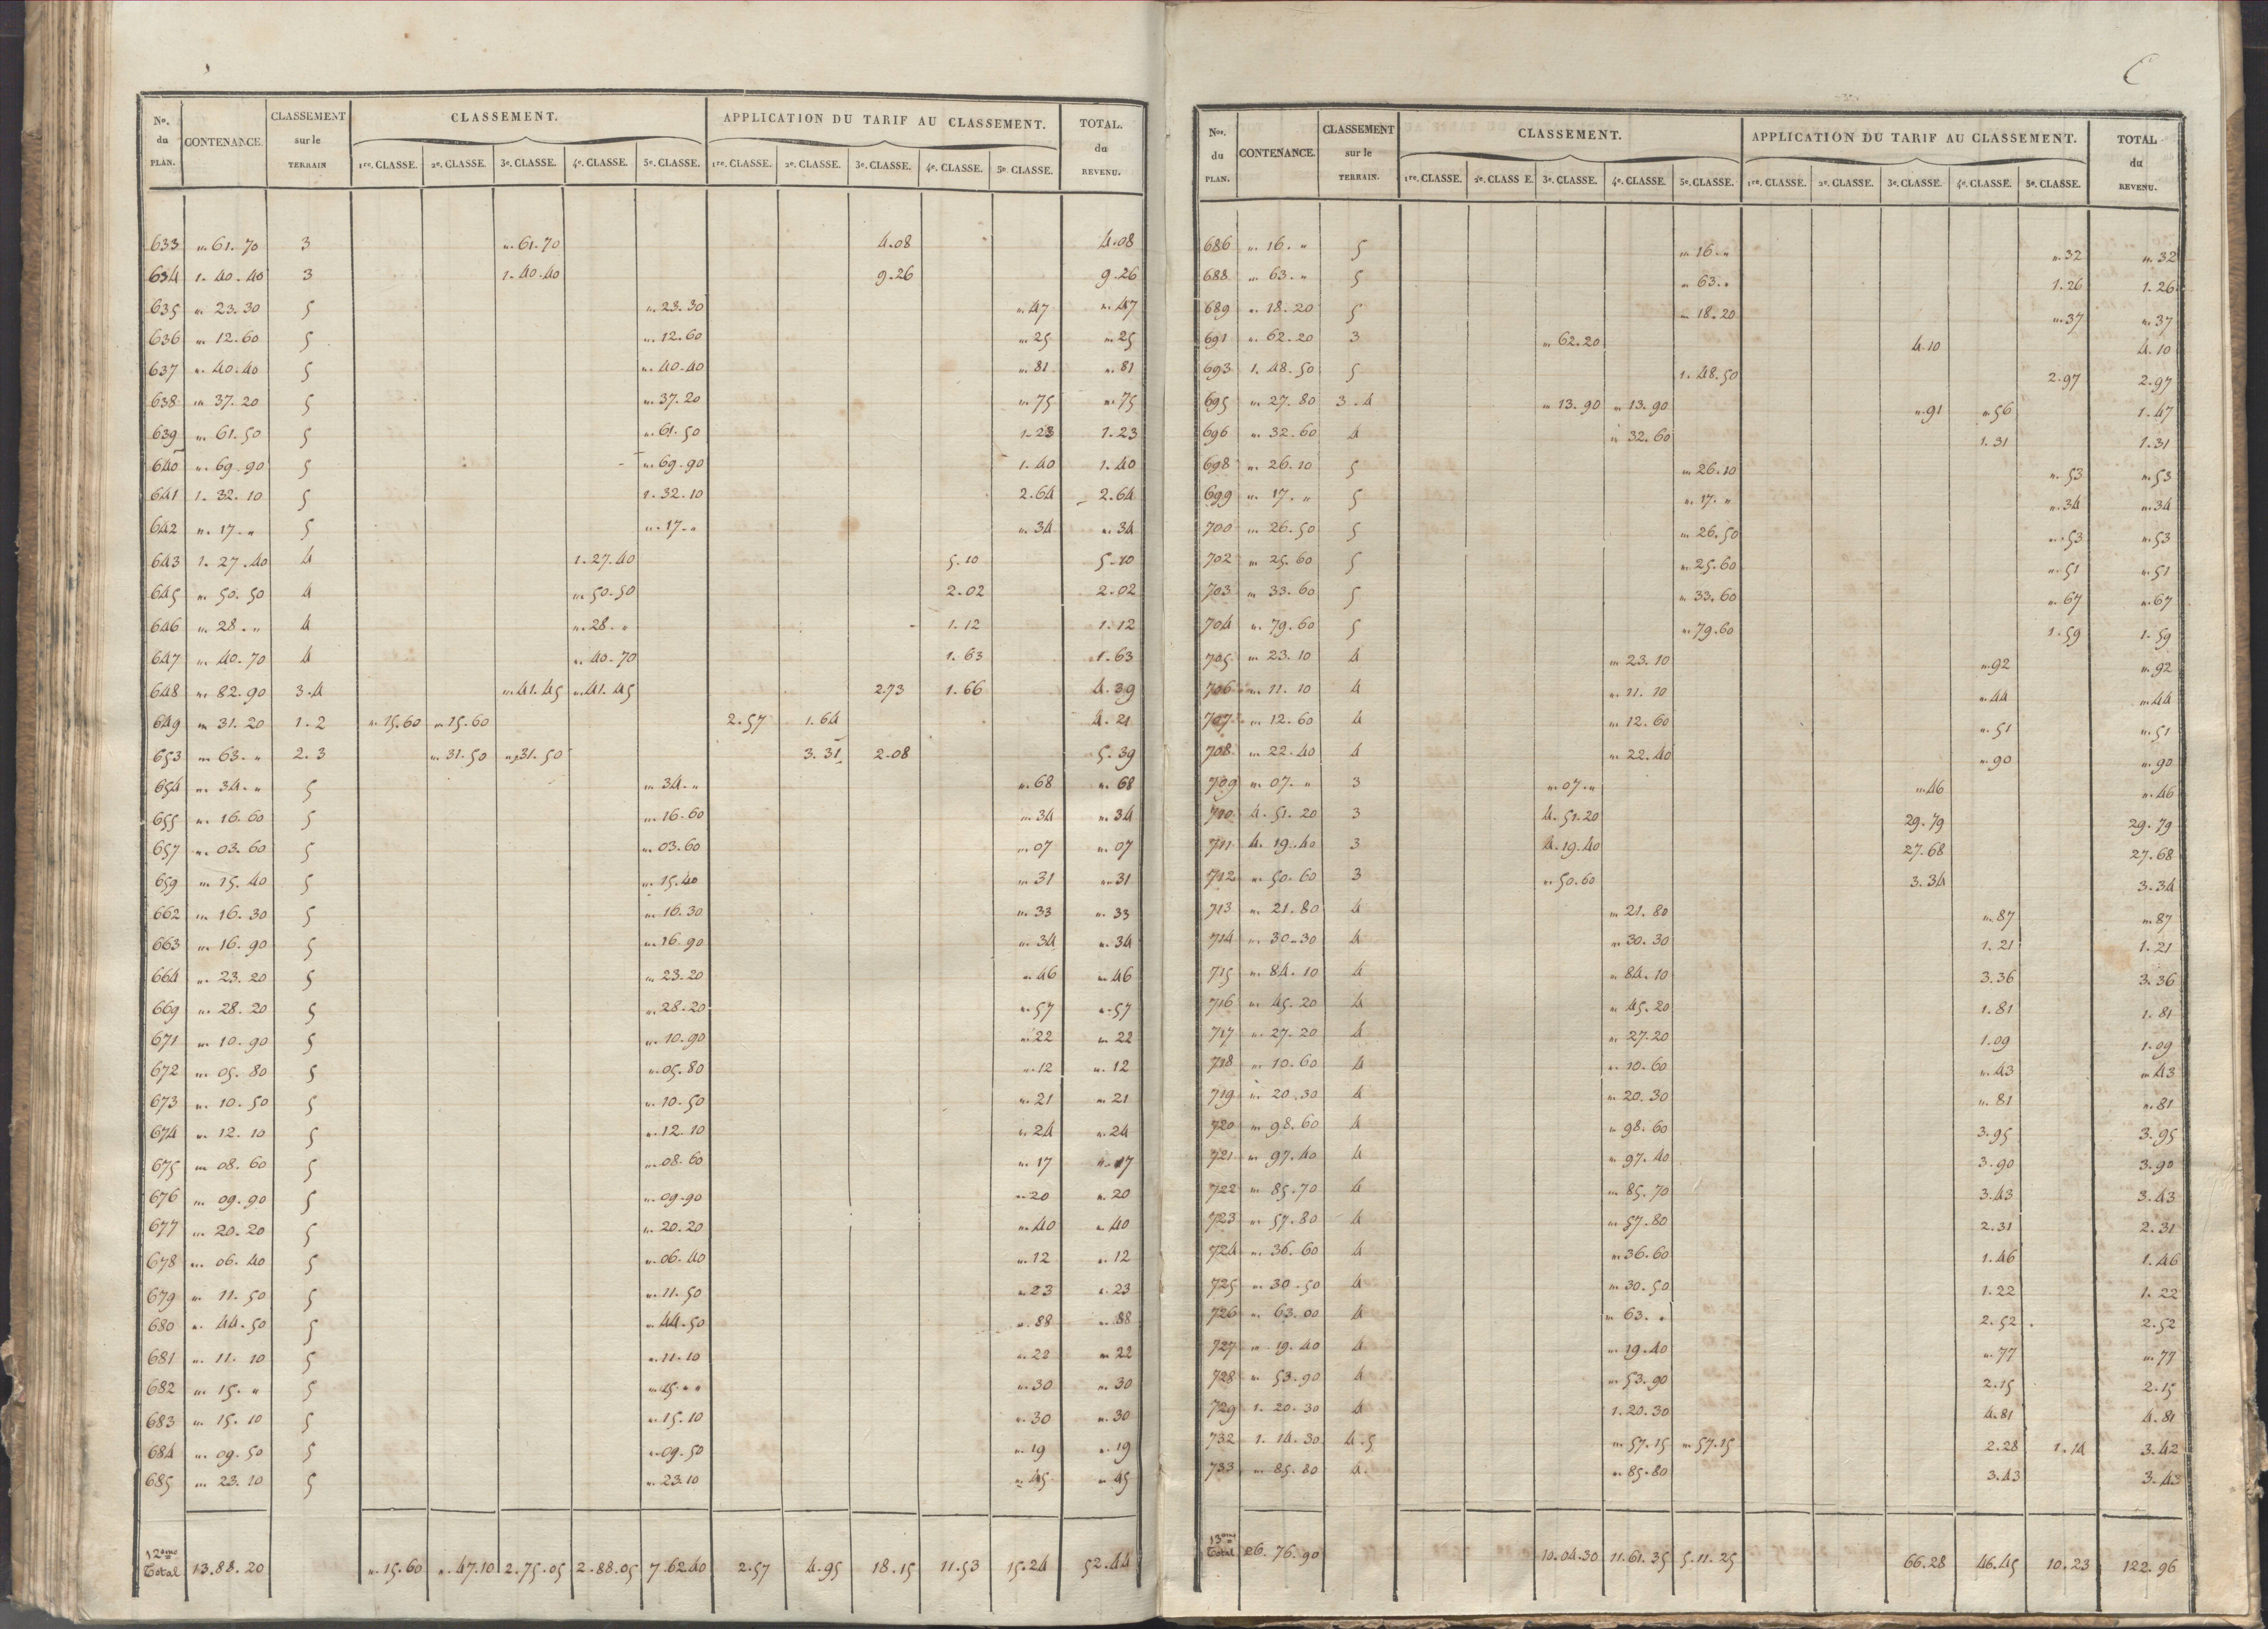 Nos. du PLAN. CONTENANCE. CLASSEMENT sur le TERRAIN CLASSEMENT. APPLICATION DU TARIF AU CLASSEMENT. TOTAL. du REVENU.
1re. CLASSE. 2e. CLASSE. 3e. CLASSE. 4e. CLASSE. 5e. CLASSE. 1re. CLASSE. 2e. CLASSE. 3e. CLASSE. 4e. CLASSE. 5e CLASSE.
633 ". 61. 70 3 ". 61. 70 4.08 4.08
634 1. 40. 40 3 1. 40. 40 9.26 9.26
635 ". 23. 30 5 ". 23. 30 ". 47 ". 47
636 ". 12. 60 5 ". 12. 60 ". 25 ". 25
637 ". 40. 40 5 ". 40. 40 ". 81 ". 81
638 ". 37. 20 5 ". 37. 20 ". 75 ". 75
639 ". 61. 50 5 ". 61. 50 1. 23 1. 23
640 ". 69. 90 5 ". 69. 90 1. 40 1. 40
641 1. 32. 10 5 1. 32. 10 2. 64 2. 64
642 ". 17. " 5 ". 17. " ". 34 ". 34
643 1. 27. 40 4 1. 27. 40 5. 10 5. 10
645 ". 50. 50 4 ". 50. 50 2. 02 2. 02
646 ". 28. " 4 ". 28. " 1. 12 1. 12
647 ". 40. 70 4 ". 40. 70 1. 63 1. 63
648 ". 82. 90 3. 4 ". 41. 45 ". 41. 45 2.73 1. 66 4. 39
649 ". 31. 20 1. 2 ". 15. 60 ". 15. 60 2. 57 1. 64 4. 21
653 ". 63. " 2. 3 ". 31. 50 ". 31. 50 3. 31 2. 08 5. 39
654 ". 34. " 5 ". 34. " ". 68 ". 68
655 ". 16. 60 5 ". 16. 60 ". 34 ". 34
657 ". 03. 60 5 ". 03. 60 ". 07 ". 07
659 ". 15. 40 5 ". 15. 40 ". 31 ". 31
662 ". 16. 30 5 ". 16. 30 ". 33 ". 33
663 ". 16. 90 5 ". 16. 90 ". 34 ". 34
664 ". 23. 20 5 ". 23. 20 ". 46 ". 46
669 ". 28. 20 5 ". 28. 20 ". 57 ". 57
671 ". 10. 90 5 ". 10. 90 ". 22 ". 22
672 ". 05. 80 5 ". 05. 80 ". 12 ". 12
673 ". 10. 50 5 ". 10. 50 ". 21 ". 21
674 ". 12. 10 5 ". 12. 10 ". 24 ". 24
675 ". 08. 60 5 ". 08. 60 ". 17 ". 17
676 ". 09. 90 5 ". 09. 90 ". 20 ". 20
677 ". 20. 20 5 ". 20. 20 ". 40 ". 40
678 ". 06. 40 5 ". 06. 40 ". 12 ". 12
679 ". 11. 50 5 ". 11. 50 ". 23 ". 23
680 ". 44. 50 5 ". 44. 50 ". 88 ". 88
681 ". 11. 10 5 ". 11. 10 ". 22 ". 22
682 ". 15. " 5 ". 15. " ". 30 ". 30
683 ". 15. 10 5 ". 15. 10 ". 30 ". 30
684 ". 09. 50 5 ". 09. 50 ". 19 ". 19
685 ". 23. 10 5 ". 23. 10 ". 45 ". 45
12ème Total 13. 88. 20 ". 15. 60 ". 47. 10 2. 75. 05 2. 88. 05 7. 62. 40 2. 57 4. 95 18. 15 11. 53 15. 24 52. 44
Nos. du PLAN. CONTENANCE. CLASSEMENT sur le TERRAIN. CLASSEMENT. APPLICATION DU TARIF AU CLASSEMENT. TOTAL du REVENU.
1re. CLASSE. 2e. CLASS E. 3e. CLASSE. 4e. CLASSE. 5e. CLASSE. 1re. CLASSE. 2e. CLASSE. 3e. CLASSE. 4e. CLASSE. 5e. CLASSE.
686 ". 16. " 5 ". 16. " ". 32 ". 32
688 ". 63. " 5 ". 63. " 1. 26 1. 26
689 ". 18. 20 5 ". 18. 20 ". 37 ". 37
691 ". 62. 20 3 ". 62. 20 4. 10 4. 10
693 1. 48. 50 5 1. 48. 50 2. 97 2. 97
695 ". 27. 80 3. 4 ". 13. 90 ". 13. 90 ". 91 ". 56 1. 47
696 ". 32. 60 4 ". 32. 60 1. 31 1. 31
698 ". 26. 10 5 ". 26. 10 ". 53 ". 53
699 ". 17. " 5 ". 17. " ". 34 ". 34
700 ". 26. 50 5 ". 26. 50 ". 53 ". 53
702 ". 25. 60 5 ". 25. 60 ". 51 ". 51
703 ". 33. 60 5 ". 33. 60 ". 67 ". 67
704 ". 79. 60 5 ". 79. 60 1. 59 1. 59
705 ". 23. 10 4 ". 23. 10 ". 92 ". 92
706 ". 11. 10 4 ". 11. 10 ". 44 ". 44
707 ". 12. 60 4 ". 12. 60 ". 51 ". 51
708 ". 22. 40 4 ". 22. 40 ". 90 ". 90
709 ". 07. " 3 ". 07. " ". 46 ". 46
710 4. 51. 20 3 4. 51. 20 29. 79 29. 79
711 4. 19. 40 3 4. 19. 40 27. 68 27. 68
712 ". 50. 60 3 ". 50. 60 3. 34 3. 34
713 ". 21. 80 4 ". 21. 80 ". 87 ". 87
714 ". 30. 30 4 ". 30. 30 1. 21 1. 21
715 ". 84. 10 4 ". 84. 10 3. 36 3. 36
716 ". 45. 20 4 ". 45. 20 1. 81 1. 81
717 ". 27. 20 4 ". 27. 20 1. 09 1. 09
718 ". 10. 60 4 ". 10. 60 ". 43 ". 43
719 ". 20. 30 4 ". 20. 30 ". 81 ". 81
720 ". 98. 60 4 ". 98. 60 3. 95 3. 95
721 ". 97. 40 4 ". 97. 40 3. 90 3. 90
722 ". 85. 70 4 ". 85. 70 3. 43 3. 43
723 ". 57. 80 4 ". 57. 80 2. 31 2. 31
724 ". 36. 60 4 ". 36. 60 1. 46 1. 46
725 ". 30. 50 4 ". 30. 50 1. 22 1. 22
726 ". 63. 00 4 ". 63. " 2. 52 2. 52
727 ". 19. 40 4 ". 19. 40 ". 77 ". 77
728 ". 53. 90 4 ". 53. 90 2. 15 2. 15
729 1. 20. 30 4 1. 20. 30 4. 81 4. 81
732 1. 14. 30 4. 5 ". 57. 15 ". 57. 15 2. 28 1. 14 3. 42
733 ". 85. 80 4 ". 85. 80 3. 43 3. 43
13ème Total 26. 76. 90 10. 04. 30 11. 61. 35 5. 11. 25 66. 28 46. 45 10. 23 122. 96